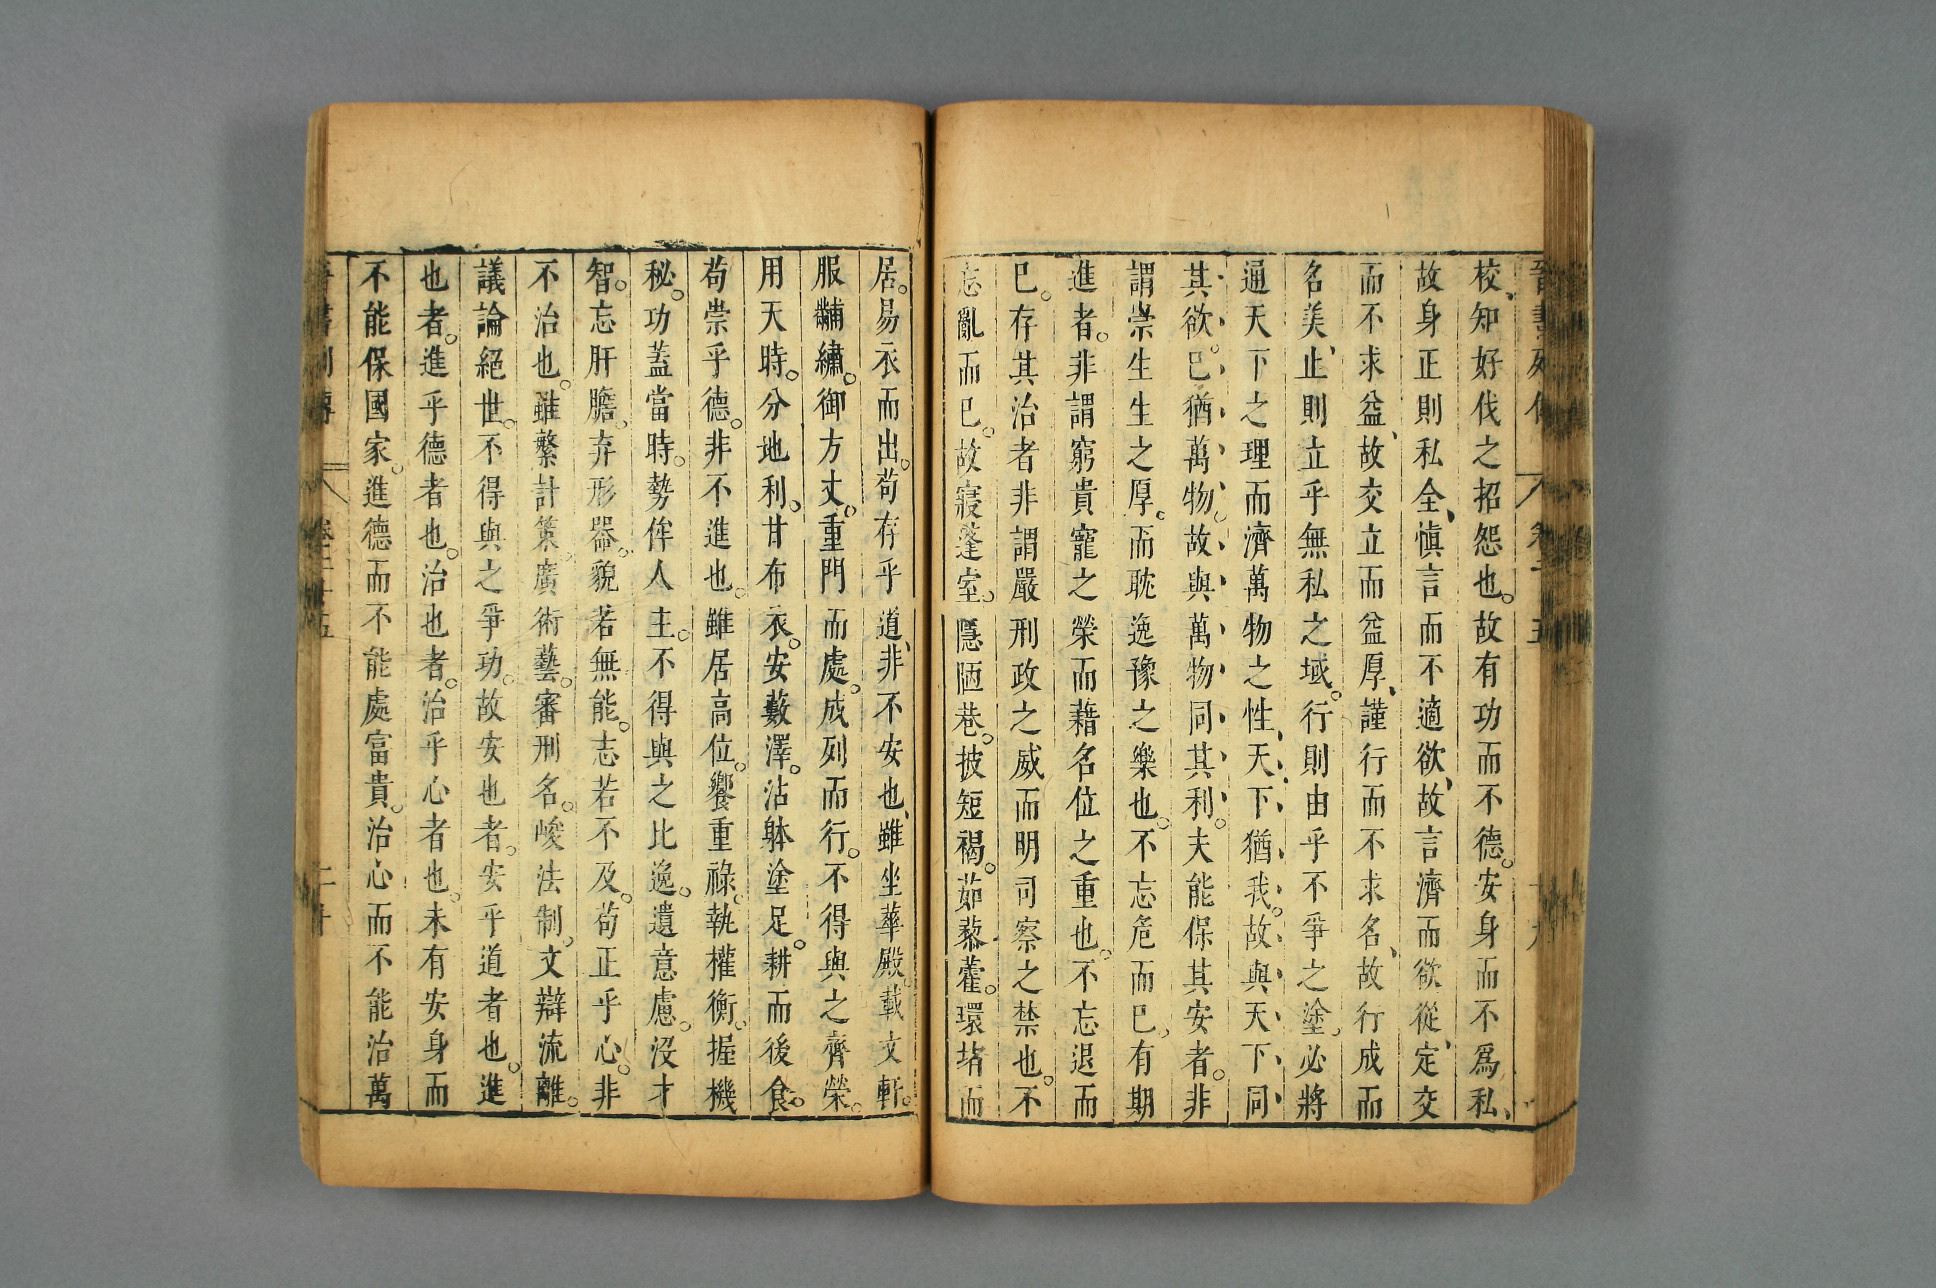 晉書列傳 卷二十五 十九
校、知好伐之招怨也。故有功而不德。安身而不爲私、
故身正則私全、愼言而不適欲、故言濟而欲從、定交
而不求益、故交立而益厚、謹行而不求名、故行成而
名美、止則立乎無私之域。行則由乎不爭之塗。必將
通天下之理而濟萬物之性、天下猶我。故與天下同
其欲。巳猶萬物。故與萬物同其利。夫能保其安者。非
謂崇生生之厚。而耽逸豫之樂也。不忘危而巳。有期
進者。非謂窮貴寵之榮而藉名位之重也。不忘退而
巳。存其治者非謂嚴刑政之威而明司察之禁也。不
忘亂而巳。故寢蓬室。隱陋巷。披短褐。茹藜藿。環堵而
居。易衣而出。苟存乎道、非不安也、雖坐華殿。載文軒。
服黼繡。御方丈。重門而處。成列而行。不得與之齊榮。
用天時。分地利。甘布衣。安藪澤。沾躰塗足。耕而後食。
苟崇乎德。非不進也。雖居高位。饗重祿。執權衡。握機
秘。功蓋當時。勢侔人主。不得與之比逸。遺意慮。沒才
智。忘肝膽。弃形器。貌若無能。志若不及。苟正乎心。非
不治也。雖繁計策。廣術藝。審刑名。峻法制。文辯流離。
議論絕世。不得與之爭功。故安也者。安乎道者也。進
也者。進乎德者也。治也者。治乎心者也。未有安身而
不能保國家。進德而不能處富貴。治心而不能治萬
晉書列傳 卷二十五 二十